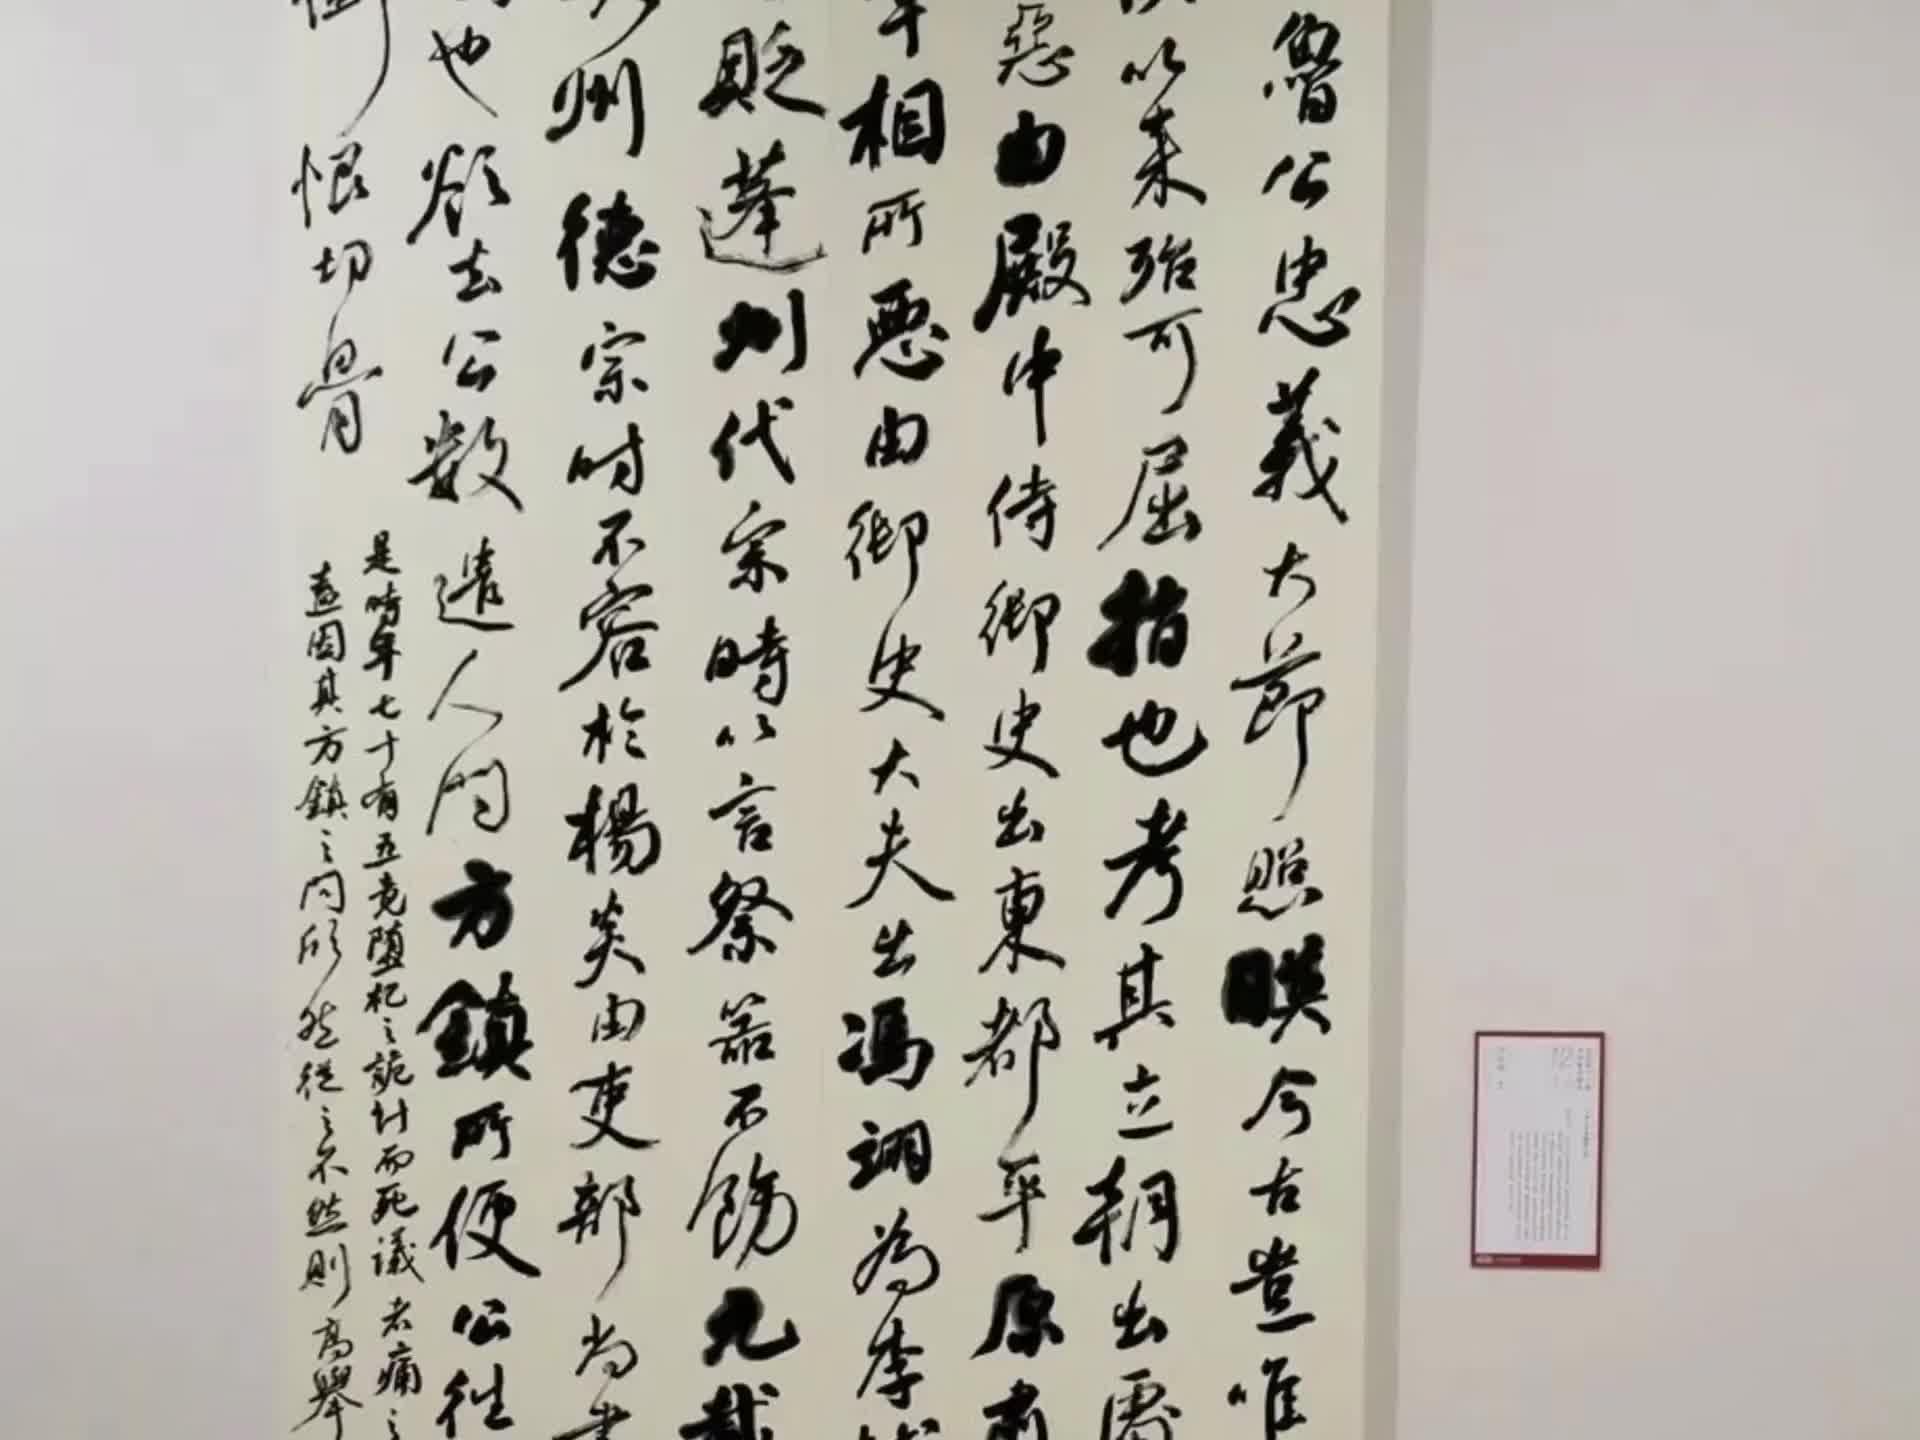 魯公忠義大節照暎今古豈唯
以来殆可屈指也考其立朝出
惡由殿中侍御史出東都平原
相所惡由御史大夫出馮翊為李
貶蓬州代宗時以言祭器不飭元載
州德宗時不容於楊炎由吏部尚書
也欲去公數遣人問方鎮所便公往
恨切骨
是時年七十有五竟堕杞之詭計而死議者痛之
盍因其方鎮之問欣然從之不然則高舉